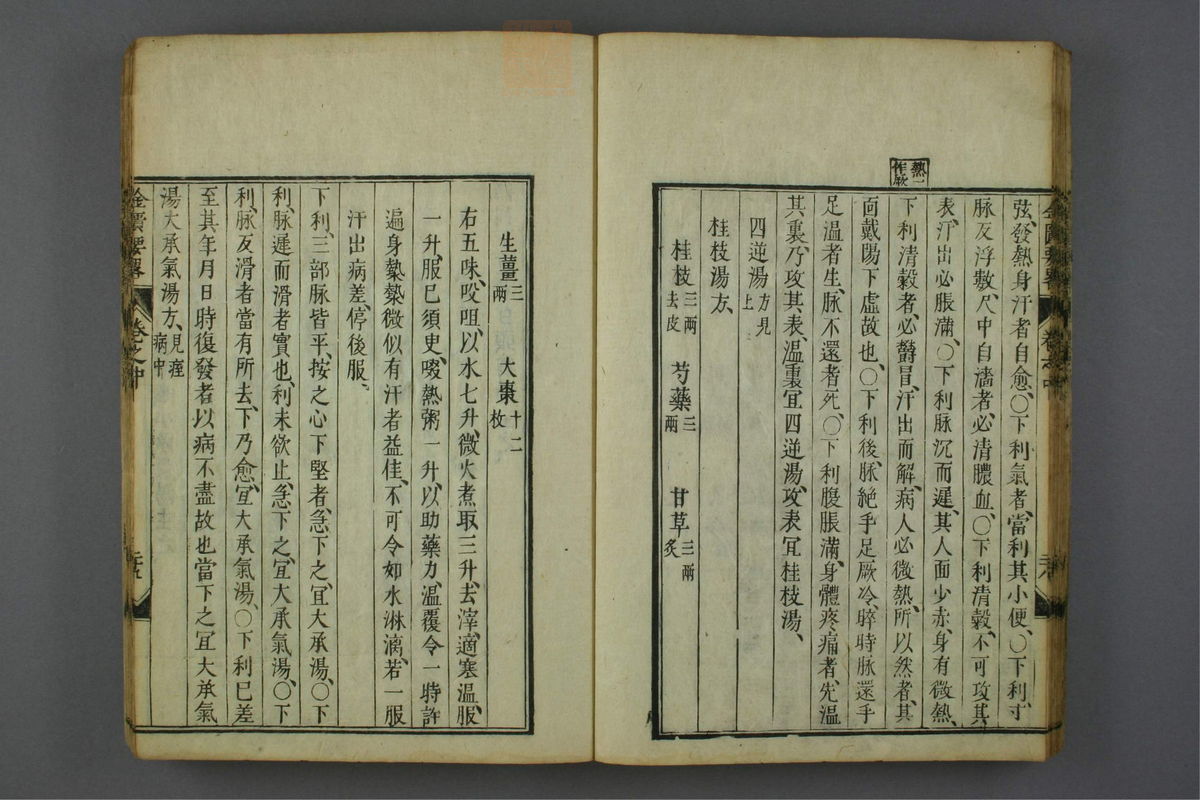 熱一
作厥
弦、發熱身汗者自愈、〇下利氣者、當利其小便、〇下利、寸
脉反浮數、尺中自濇者、必清膿血、〇下利清穀、不可攻其
表、汗出必脹滿、〇下利脉沉而遲、其人面少赤、身有微熱、
下利清穀者、必欝冒、汗出而解、病人必微熱、所以然者、其
面戴陽、下虛故也、〇下利後、脉絕手足厥冷、晬時脉還手
足溫者生、脉不還者死、〇下利腹脹滿、身體疼痛者、先溫
其裏、乃攻其表、溫裏宜四逆湯、攻表宜桂枝湯、
四逆湯方見上
桂枝湯方、
桂枝三兩去皮 芍藥三兩 甘草三兩炙
生薑三兩 大棗十二枚
右五味、㕮咀、以水七升、微火煮取三升、去滓、適寒溫、服
一升、服巳須臾、啜熱粥一升、以助藥力、溫覆令一時許
遍身漐漐微似有汗者益佳、不可令如水淋漓、若一服
汗出病差、停後服、
下利、三部脉皆平、按之心下堅者、急下之、宜大承湯、〇下
利、脉遲而滑者實也、利未欲止、急下之、宜大承氣湯、〇下
利、脉反滑者當有所去、下乃愈、宜大承氣湯、〇下利巳差
至其年月日時復發者以病不盡故也當下之宜大承氣
湯大承氣湯方、見痙病中
金匱要畧 卷之中 二十五